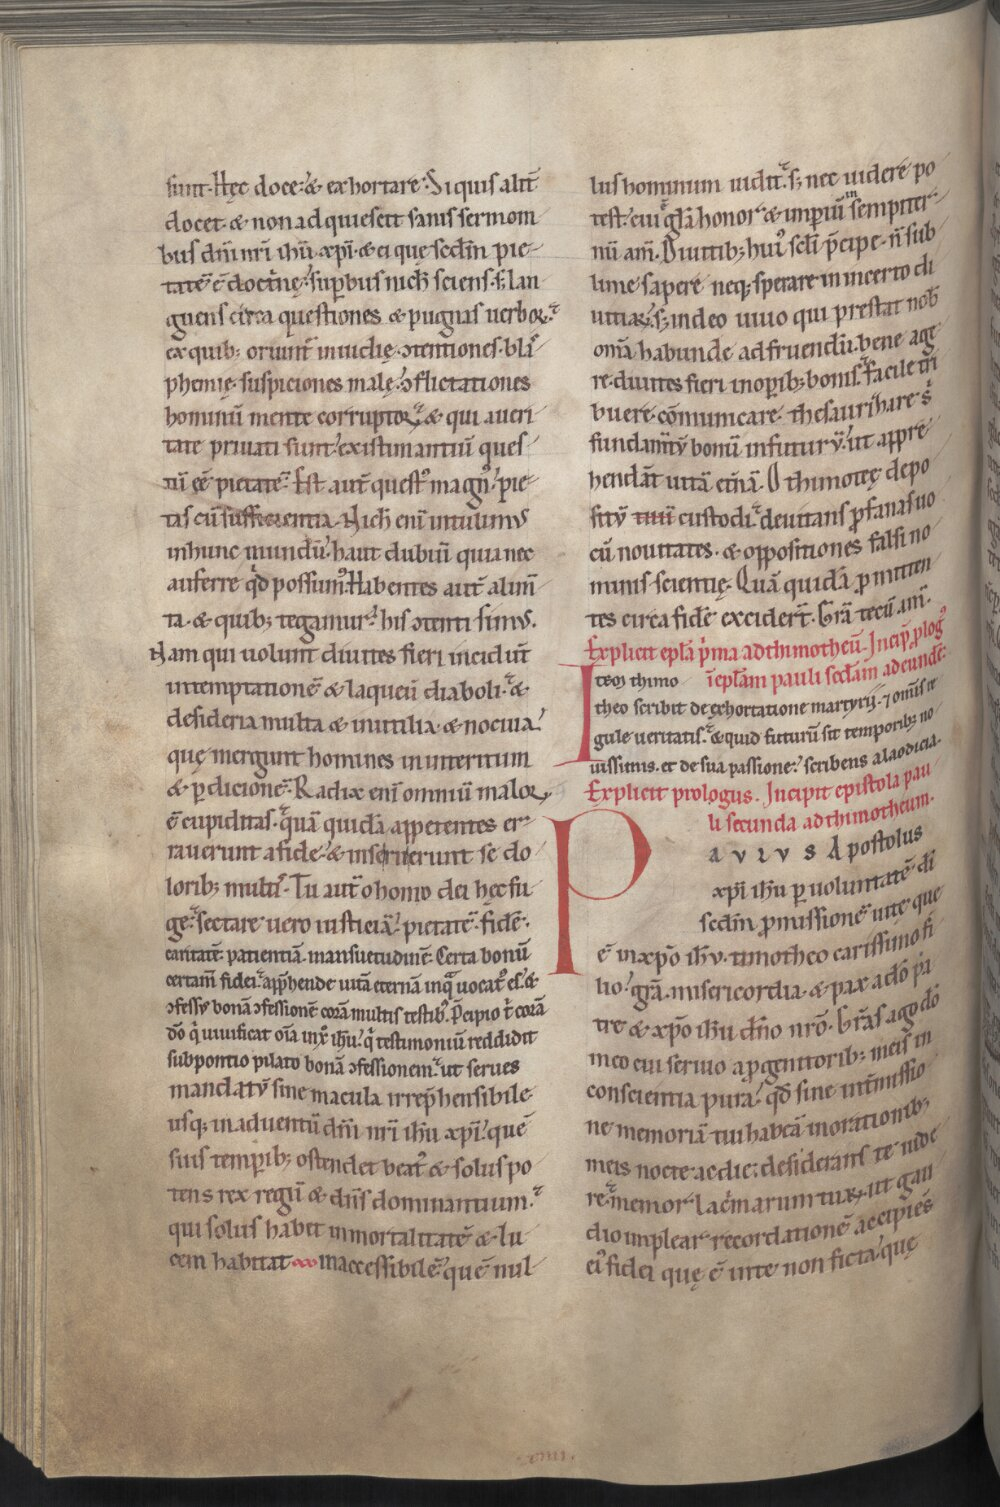 sunt. Hęc doce. & exhortare. Si quis alit̄
docet. & non adquiescit sanis sermoni
bus dn̄i nr̄i ih̄u xp̄i. & ei quę sectm̄ pie
tatē ē doctr̄nę. sup̄bus nich̄ sciens. s; lan
guens circa questiones & pugnas uerboꝝ.
ex quib; oriunt̄ inuidię. ↄtentiones. blas
phemię. suspiciones malę. ↄflictationes
hominū mente corruptoꝝ. & qui aueri
tate priuati sunt. existimantiū ques
tū eē pietatē. Est aut̄ quest᷒ magn᷒. pie
tas cū sufficientia. Nich̄ enī intulim᷒
inhunc mundū. haut dubiū quia nec
auferre qd̄ possum᷒. Habentes aut̄ alim̄
ta. & quib; tegamur. his ↄtenti sim᷒.
Nam qui uolunt diuites fieri incidūt
intemptationē & laqueū diaboli. &
desideria multa & inutilia. & nociua.
quę mergunt homines ininteritum
& p̄dicionē. Radix enī omniū maloꝝ
ē cupiditas. quā quidā appetentes er
rauerunt afide. & inseruerunt se do
lorib; multis. Tu aut̄ o homo dei hęc fu
ge. sectare uero iusticiā. pietatē. fidē.
caritatē. patientiā. mansuetudinē. Certa bonū
certam̄ fidei. app̄hende uitā eternā inqua uocat᷒ es. &
ↄfess᷒ bonā ↄfessionē corā multis testib᷒. P̄cipio t̄ corā
dō q̇ uiuificat oīa. inxp̄ ih̄u. q̇ testimoniū reddidit
subpontio pilato bonā ↄfessionem. ut serues
mandatū sine macula irrep̄hensibile
usq; inaduentū dn̄i nr̄i ih̄u xp̄i. quē
suis temporib; ostendet beat᷒ & solus po
tens rex regū & dn̄s dominantium.
qui solus habet inmortalitatē & lu
cem habitat inaccessibilē. quē nul
lus hominum uidit. s; nec uidere po
test. cui gl̄a honor & imperiū insempiter
nū am̄. Diuitib; hui᷒ sc̄li p̄cipe. n̄ sub
lime sapere neq; sperare inincerto di
uitiaꝝ. s; indeo uiuo qui prestat nob̄
om̄a habunde adfruendū. bene age
re. diuites fieri inoperib; bonis. facile tri
buere. cōmunicare. thesaurihare s̄
fundam̄tū bonū infuturū. ut appre
hendāt uitā et̄nā. O thimoteę depo
sitū custodi. deuitans profanas uo
cū nouitates. & oppositiones falsi no
minis scientię. Quā quidā promitten
tes circa fidē exciderūt. Gr̄a tecū am̄.
Explicit epl̄a p̄ma adthimotheū. Incip̄ plog᷒
īepl̄am pauli sec̄dam ad eundē.
Item thimo
theo scribit de exhortatione martyrij. ⁊ om̄is re
gule ueritatis. & quid futurū sit temporib; no
uissimis. et de sua passione. scribens alaodicia.
Explicit prologus. Incipit epistola pau
li secunda adthimotheum.
PAULUS Apostolus
xp̄i ih̄u per uoluntatē dī
sec̄dm promissionē uite que
ē inxp̄o ih̄u. timotheo carissimo fi
lio. gr̄a. misericordia. & pax adō pa
tre & xp̄o ih̄u dn̄o nr̄o. Gr̄as ago dō
meo cui seruio aprogenitorib; meis in
conscientia pura. qd̄ sine int̄missio
ne memoriā tui habeā inorationib;
meis nocte ac die. desiderans te uide
re. memor lacrimarum tuaꝝ. ut gau
dio implear. recordationē accipiēs
ei᷒ fidei quę ē inte non ficta. quę